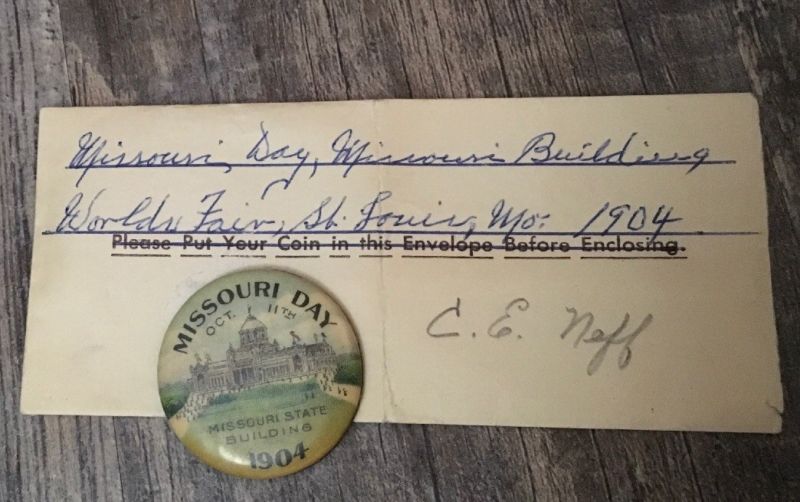 Missouri Day, Missouri Building
Worlds Fair, St. Louis, Mo. 1904
Please Put Your Coin in this Envelope Before Enclosing.
C. E. Neff
MISSOURI DAY
OCT. 11TH
MISSOURI STATE
BUILDING
1904